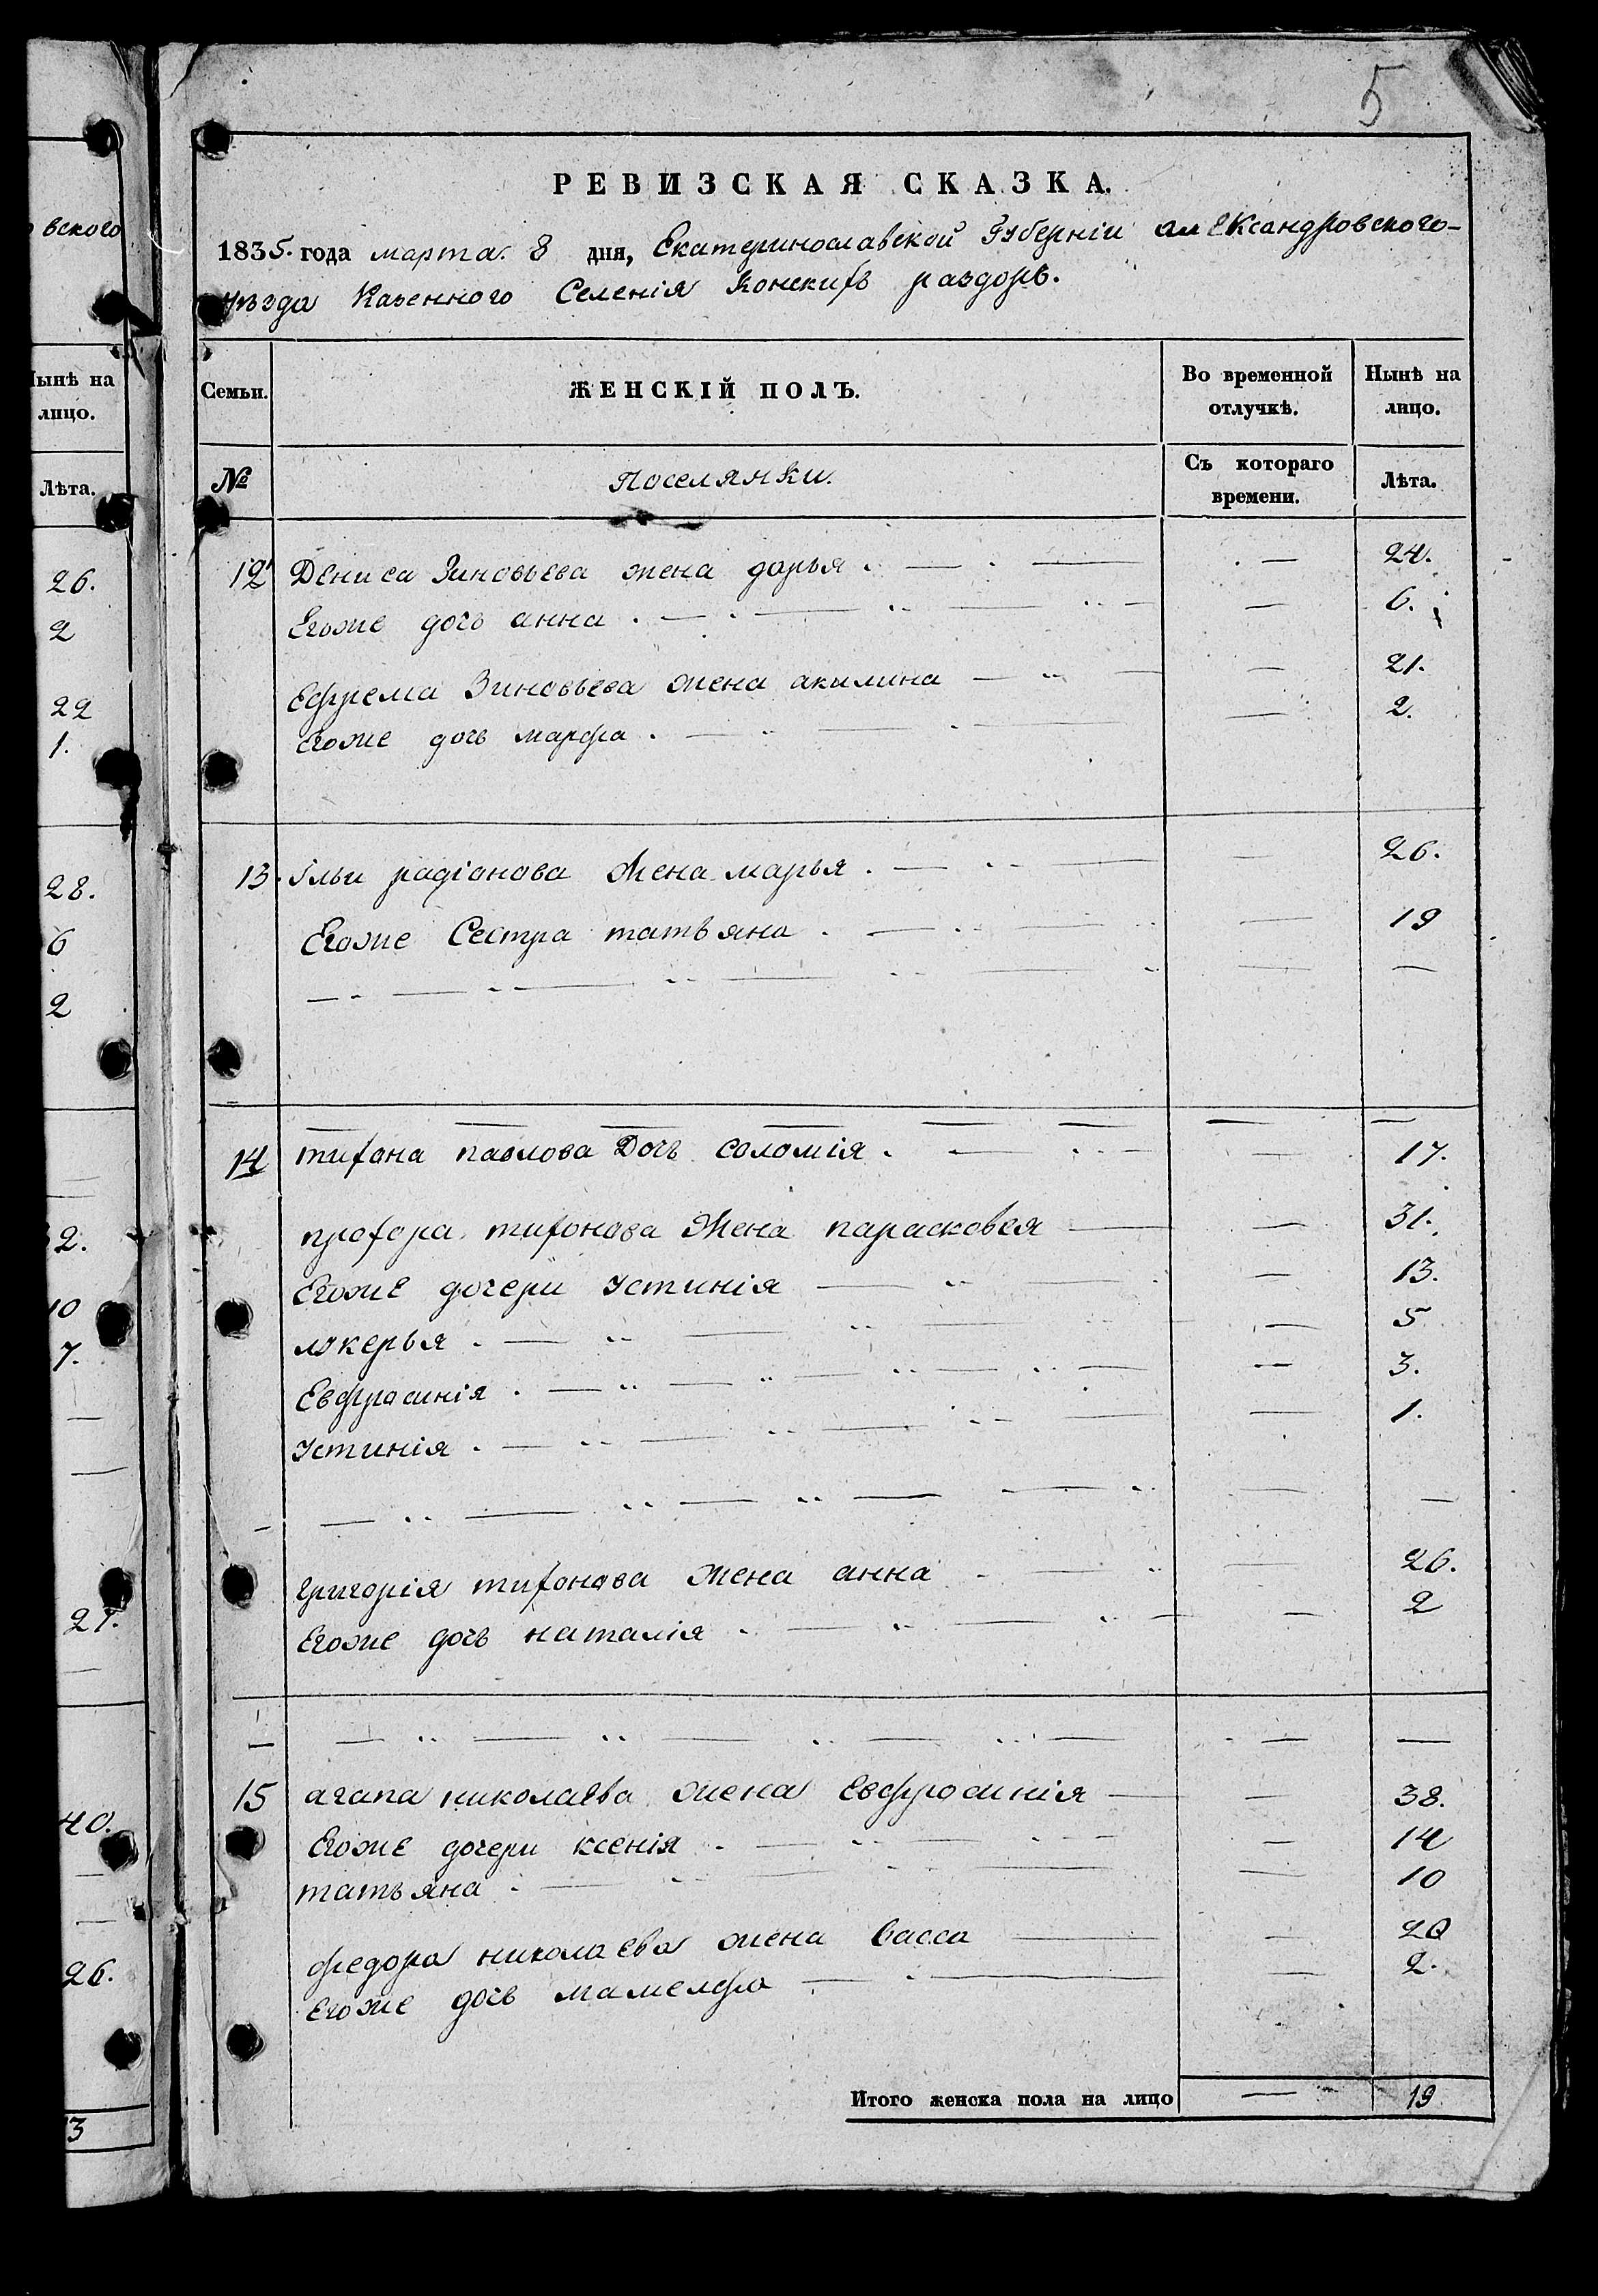 5
РЕВИЗСКАЯ СКАЗКА.
1835. года марта. 8 дня, Екатеринославской Губерніи александровского-
уѣзда Казенного Селенія Конскихъ раздоръ.
Семьи. ЖЕНСКІЙ ПОЛЪ. Во временной отлучкѣ. Нынѣ на лицо.
№ Поселянки. Съ котораго времени. Лѣта.
12 Дениса Зиновьева жена дарья . — 24.
Егоже дочь анна . — 6.
Ефрема Зиновьева жена акилина — 21.
Егоже дочь марфа . — 2.
13. Ильи радіонова Жена марья . — 26.
Егоже Сестра татьяна . — 19
— — —
14 тихона павлова Дочь соломія . — 17.
прохора тихонова Жена парасковея — 31.
Егоже дочери устинія — 13.
лукерья . — 5
Евфросинія . — 3.
устинія . — 1.
— — —
григорія тихонова жена анна — 26.
Егоже дочь наталія . — 2
— — —
15 агапа николаева жена Евфросинія — 38.
Егоже дочери ксенія . — 14
татьяна . — 10
федора николаева жена васса — 20
Егоже дочь мамелфа — 2.
Итого женска пола на лицо — 19
вского
Нынѣ на
лицо.
Лѣта.
26.
2
22
1.
28.
6
2
2.
10
7.
21.
40.
26.
13